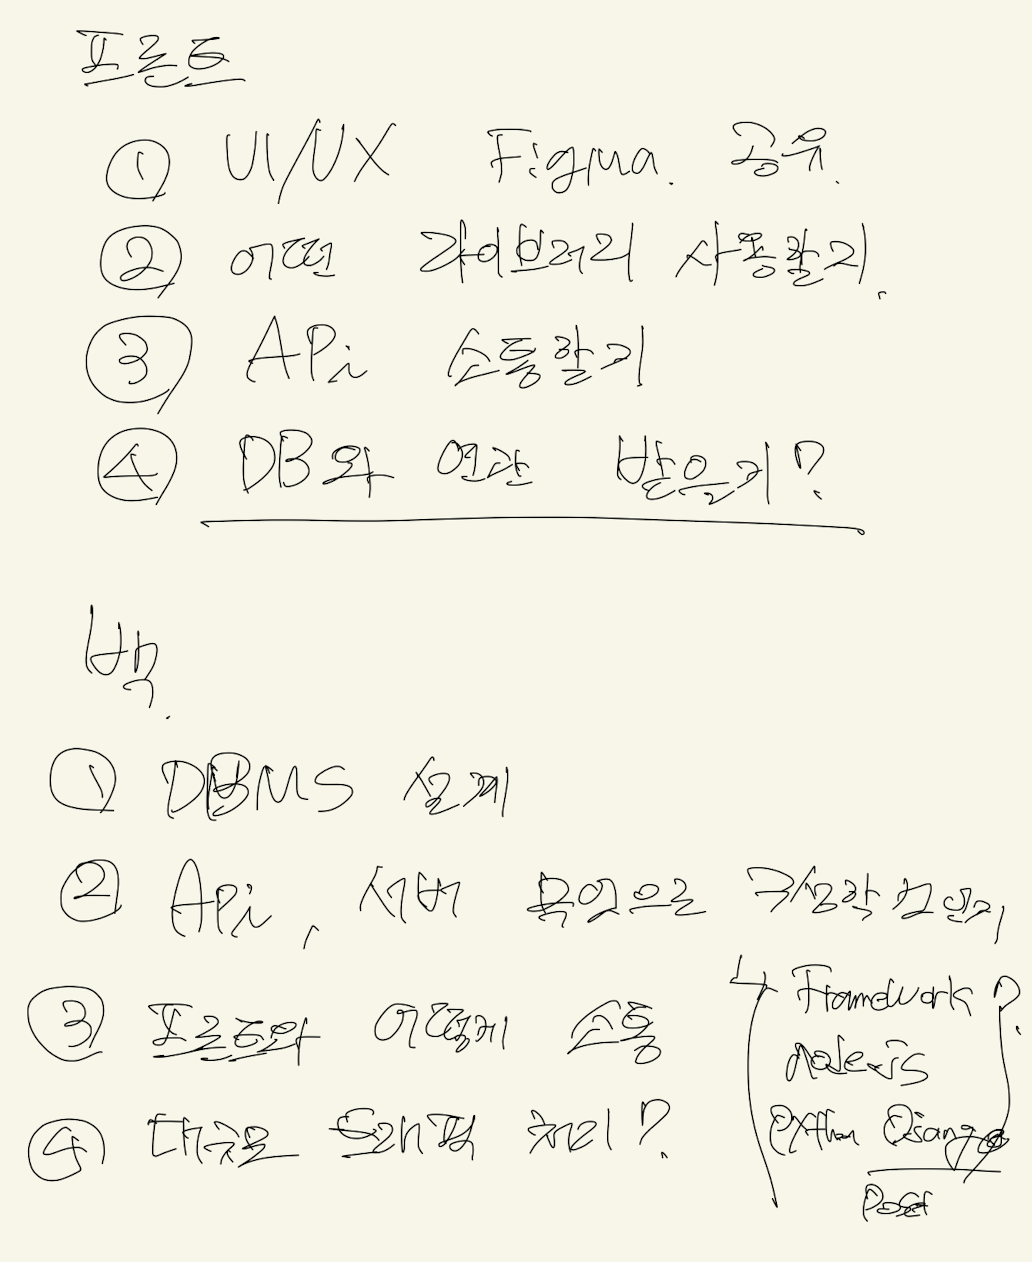 프론트
① UI/UX Figma. 공유.
② 어떤 라이브러리 사용할지.
③ APi 소통할지
④ DB와 연관 받을지?
백.
① DBMS 설계
② Api, 서버 무엇으로 구성할 것인지
↳ Framework ?
③ 프론트와 어떻게 소통
node.js
④ 대규모 트래픽 처리?
Python Django